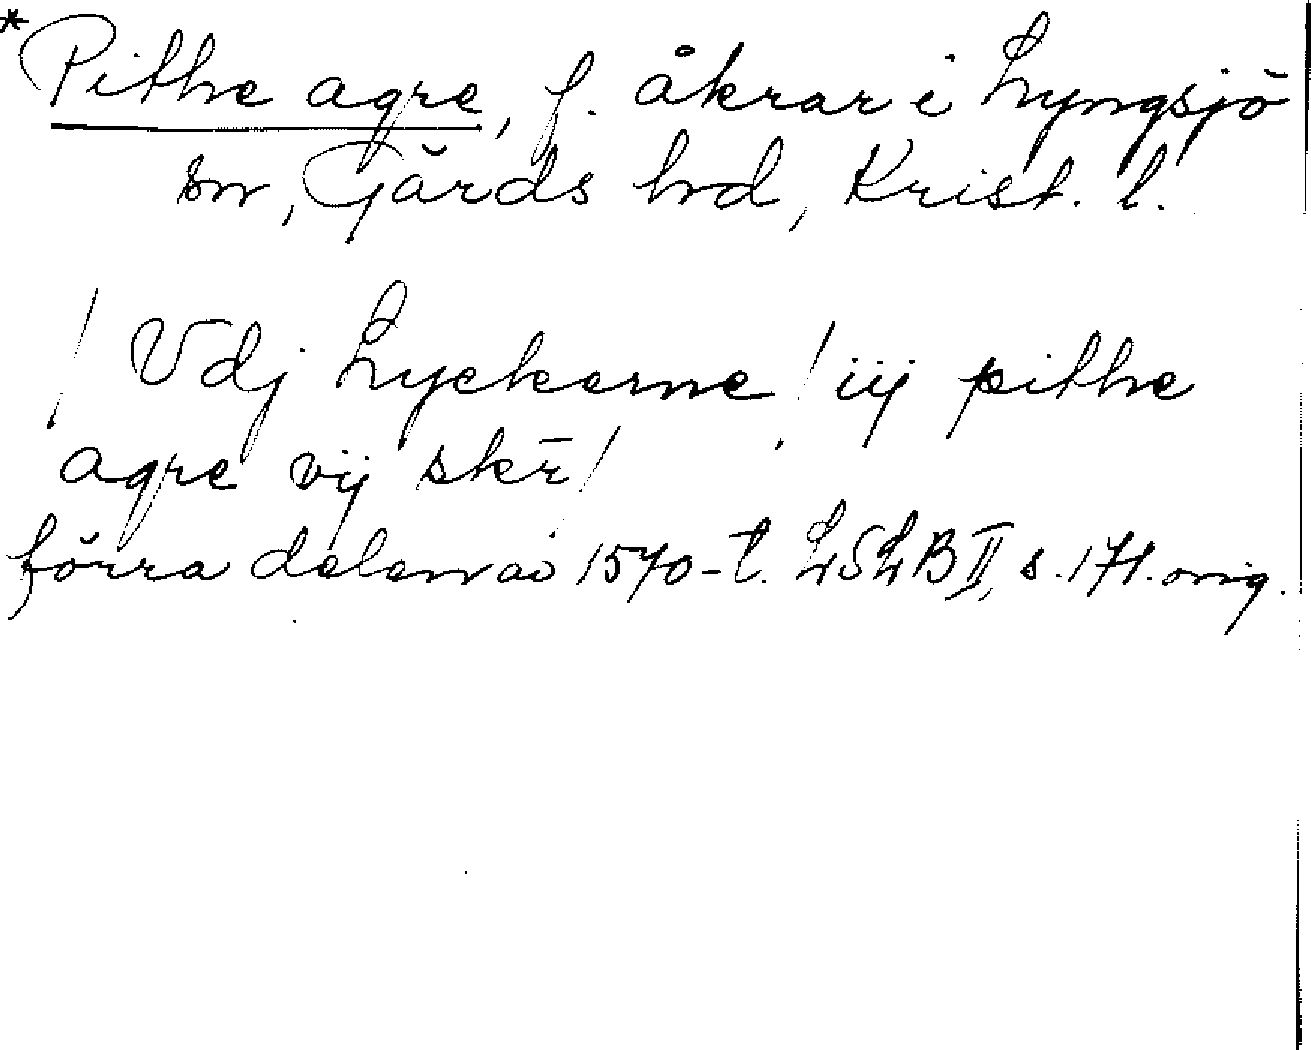 *Pithe agre, f. åkrar i Lyngsjö
sn, Gärds hd, Krist. l.
/ Vdj Lyckerne / iij pithe
agre vij skr̄ /
förra delen av 1570-t. LSLB II, s. 171. orig.